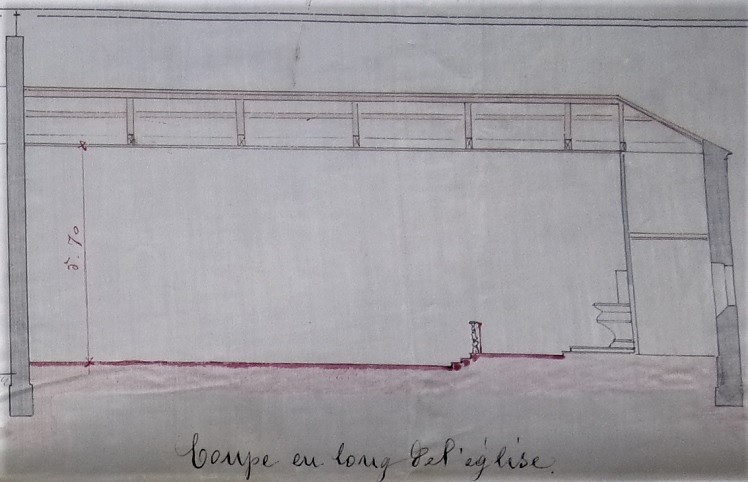 5m. 70
Coupe en long de l'église.